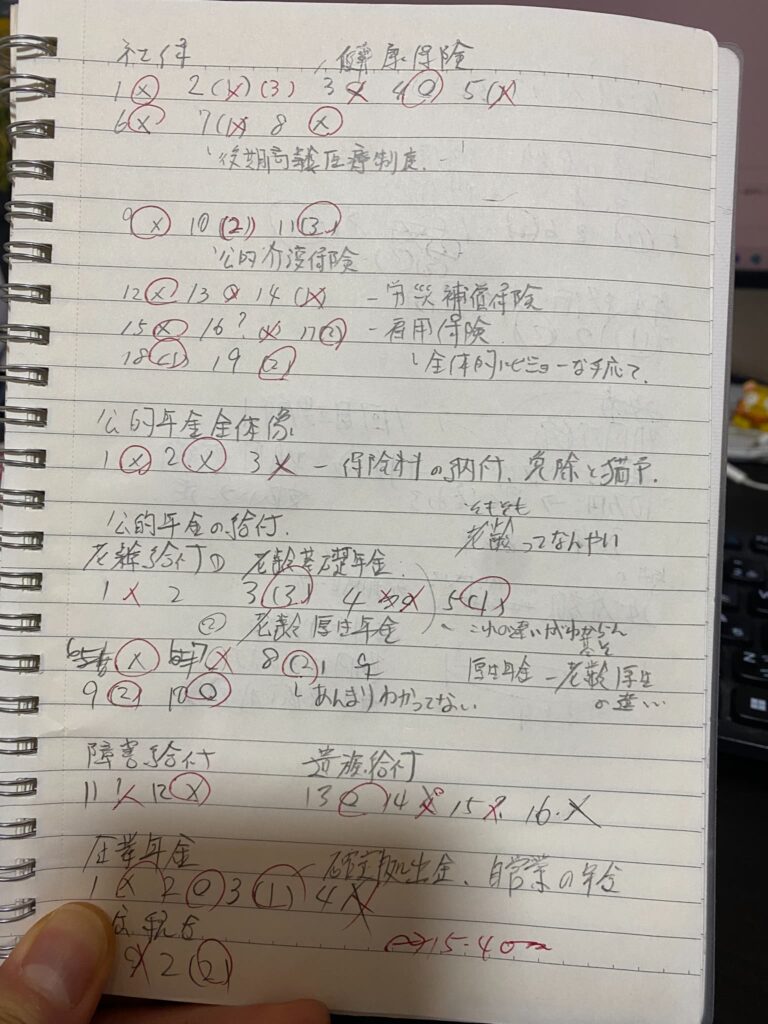 社保 健康保険
1 (×) 2 (×) (3) 3 × 4 ○ 5 (×)
6 × 7 (×) 8 (×)
後期高齢医療制度.
9 × 10 (2) 11 (3)
公的介護保険
12 × 13 14 (×) - 労災補償保険
15 × 16 ? × 17 (2) - 雇用保険
18 (1) 19 (2) 全体的にビミョーな手応て.
公的年金全体像
1 (×) 2 (×) 3 × - 保険料の納付、免除と猶予.
公的年金の給付. そもそも
老齢ってなんやい
老齢給付① 老齢基礎年金
1 × 2 3 (3) 4 5 (1)
② 老齢厚生年金 これの違いがわからん
(×) 7 × 8 (2) 厚生年金 - 老齢厚生
9 (2) 10 ○ あんまりわかってない. の違い
障害給付 遺族給付
11 ? 12 (×) 13 14 15 16. ×
企業年金 自営業の年金
1 (×) 2 ○ 3 (1) 4 ×
15.40
2 (2)